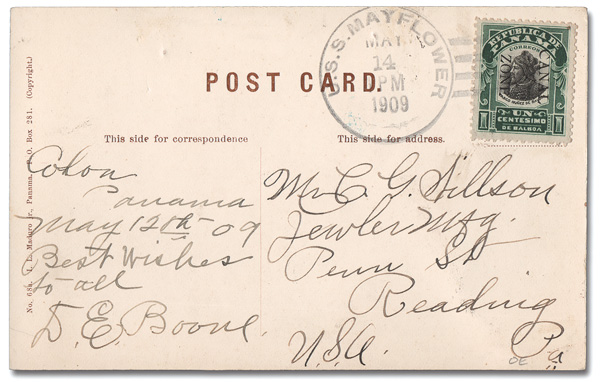 U.S.S. MAYFLOWER
MAY
14
PM
1909
REPUBLICA DE
PANAMA
CORREOS
CANAL
ZONE
1 UN 1
CENTESIMO
DE BALBOA
POST CARD.
This side for correspondence
This side for address.
No. 68a. I. L. Maduro Jr., Panama, P. O. Box 281. (Copyright.)
Colon
Panama
May 12th 09
Best Wishes
to all
D. E. Boone.
Mr C. G. Willson
Jewler Mfg.
Penn St
Reading
Pa
U.S.A.
OE